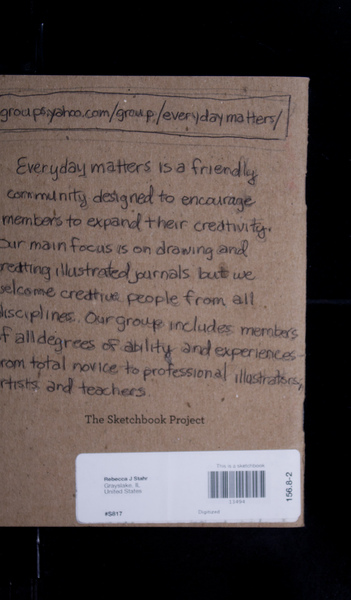 groups.yahoo.com/group/everydaymatters/
Everyday matters is a friendly
community designed to encourage
members to expand their creativity.
our main focus is on drawing and
reating illustrated journals but we
elcome creative people from all
disciplines. Our group includes members
f all degrees of ability and experiences -
rom total novice to professional illustrators,
rtists and teachers.
The Sketchbook Project
This is a sketchbook
Rebecca J Stahr
Grayslake, IL
United States
#S817
Digitized
156.8-2